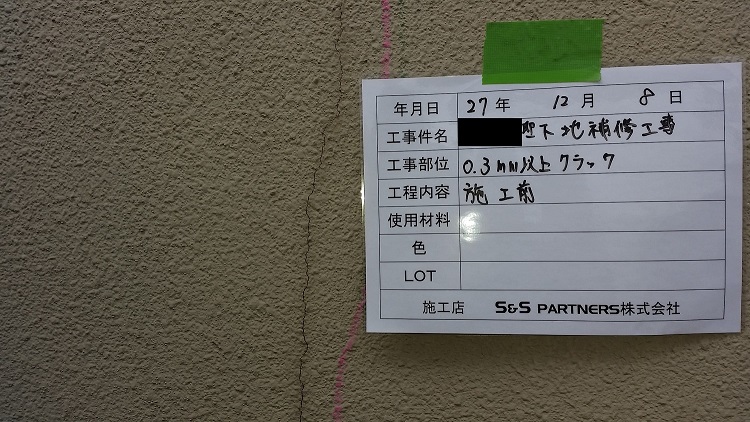 年月日 27年 12月 8日
工事件名 下地補修工事
工事部位 0.3mm以上クラック
工程内容 施工前
使用材料
色
LOT
施工店 S&S PARTNERS株式会社